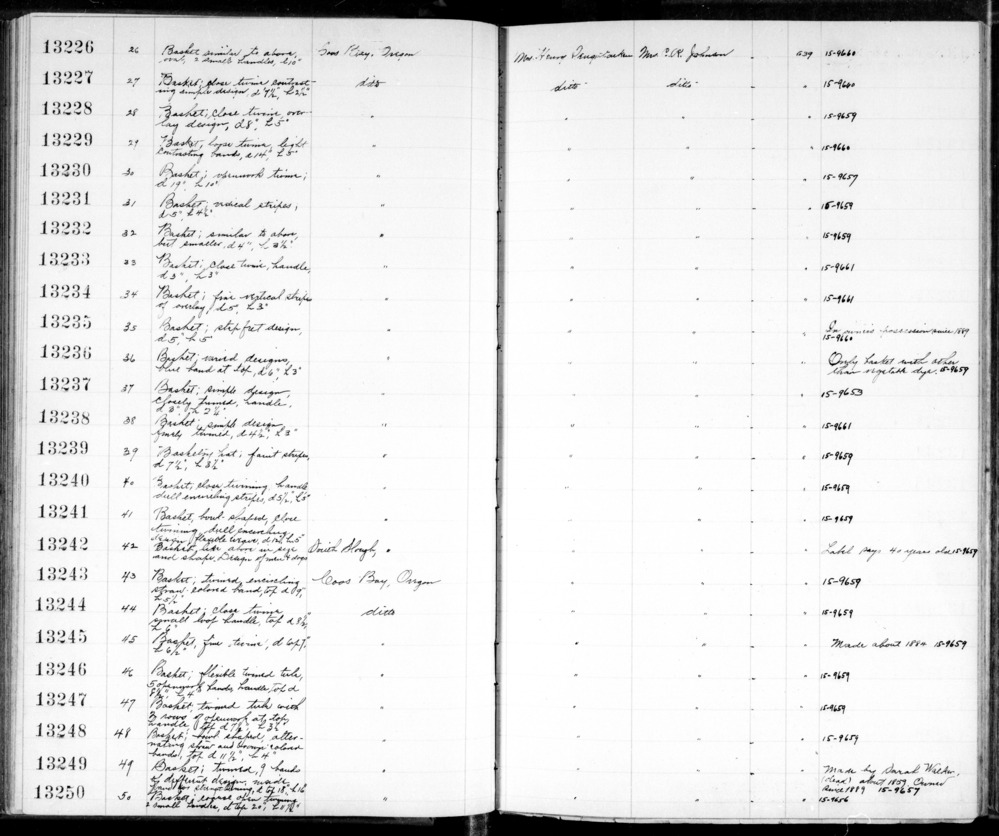 13226 26 Basket similar to above, Coos Bay, Oregon Mrs. Henry Mrs. Johnson - 639 15-9660
oval, 2 small handles, L 10"
13227 27 Basket; close twine contrast- ditto ditto ditto - " 15-9660
ing simple design, d 7½", h 2½"
13228 28 Basket; close twine, over- " " " - " 15-9659
lay design, d 8", h 5"
13229 29 Basket, loose twine, light " " " - " 15-9660
contrasting bands, d 14", h 5"
13230 30 Basket; openwork twine; " " " - " 15-9657
d 19", h 10"
13231 31 Basket; vertical stripes, " " " - " 15-9659
d 5", h 4½"
13232 32 Basket; similar to above, " " " - " 15-9659
but smaller, d 4", h 3½"
13233 33 Basket; close twine, handle, " " " - " 15-9661
d 3", h 3"
13234 34 Basket; fine vertical stripes " " " - " 15-9661
of overlay, d 5", h 3"
13235 35 Basket; step fret design, " " " - " In possession since 1889
d 5, h 5 15-9660
13236 36 Basket; varied designs, " " " - " Only basket with other
blue band at top, d 6", h 3" than vegetable dye. 15-9659
13237 37 Basket; simple design, " " " - " 15-9653
closely twined, handle.
d 3", h 2¼"
13238 38 Basket; simple design, " " " - " 15-9661
finely twined, d 4½", h 3"
13239 39 Basketry hat; faint stripes, " " " - " 15-9659
d 7½", h 3½"
13240 40 Basket, close twining, handle " " " - " 15-9659
dull encircling stripes, d 5½", h 5"
13241 41 Basket, bowl-shaped, close " " " - " 15-9659
twining, dull encircling
flexible weave, d 12", h 5"
13242 42 Basket, like above in size South Slough, " " " - " Label says 40 years old 15-9659
and shape. Design of men & dogs
13243 43 Basket; twined, encircling Coos Bay, Oregon " " - " 15-9659
straw-colored band, top d 9",
h 5½"
13244 44 Basket; close twine, ditto " " - " 15-9659
small loop handle, top d 8½"
h 6"
13245 45 Basket, fine twine, d 6 " " " - " Made about 1884 15-9659
h 6½"
13246 46 Basket; flexible twined tule, " " " - " 15-9659
5 openwork bands, handle, top d
8½" h 4"
13247 47 Basket, twined tule with " " " - " 15-9659
3 rows of openwork at top,
handle, top d 7½", h 3½"
13248 48 Basket; bowl shaped, alter- " " " - " 15-9659
nating straw and brown colored
bands, top d 11½", h 4"
13249 49 Basket; twined, 9 bands " " " - " Made by Sarah Walker,
of different design, made (dead) about 1859. Owned
h 16 since 1889 15-9657
13250 50 Basket, coarse open twining " " " - " 15-9656
2 small handles, d top 20"